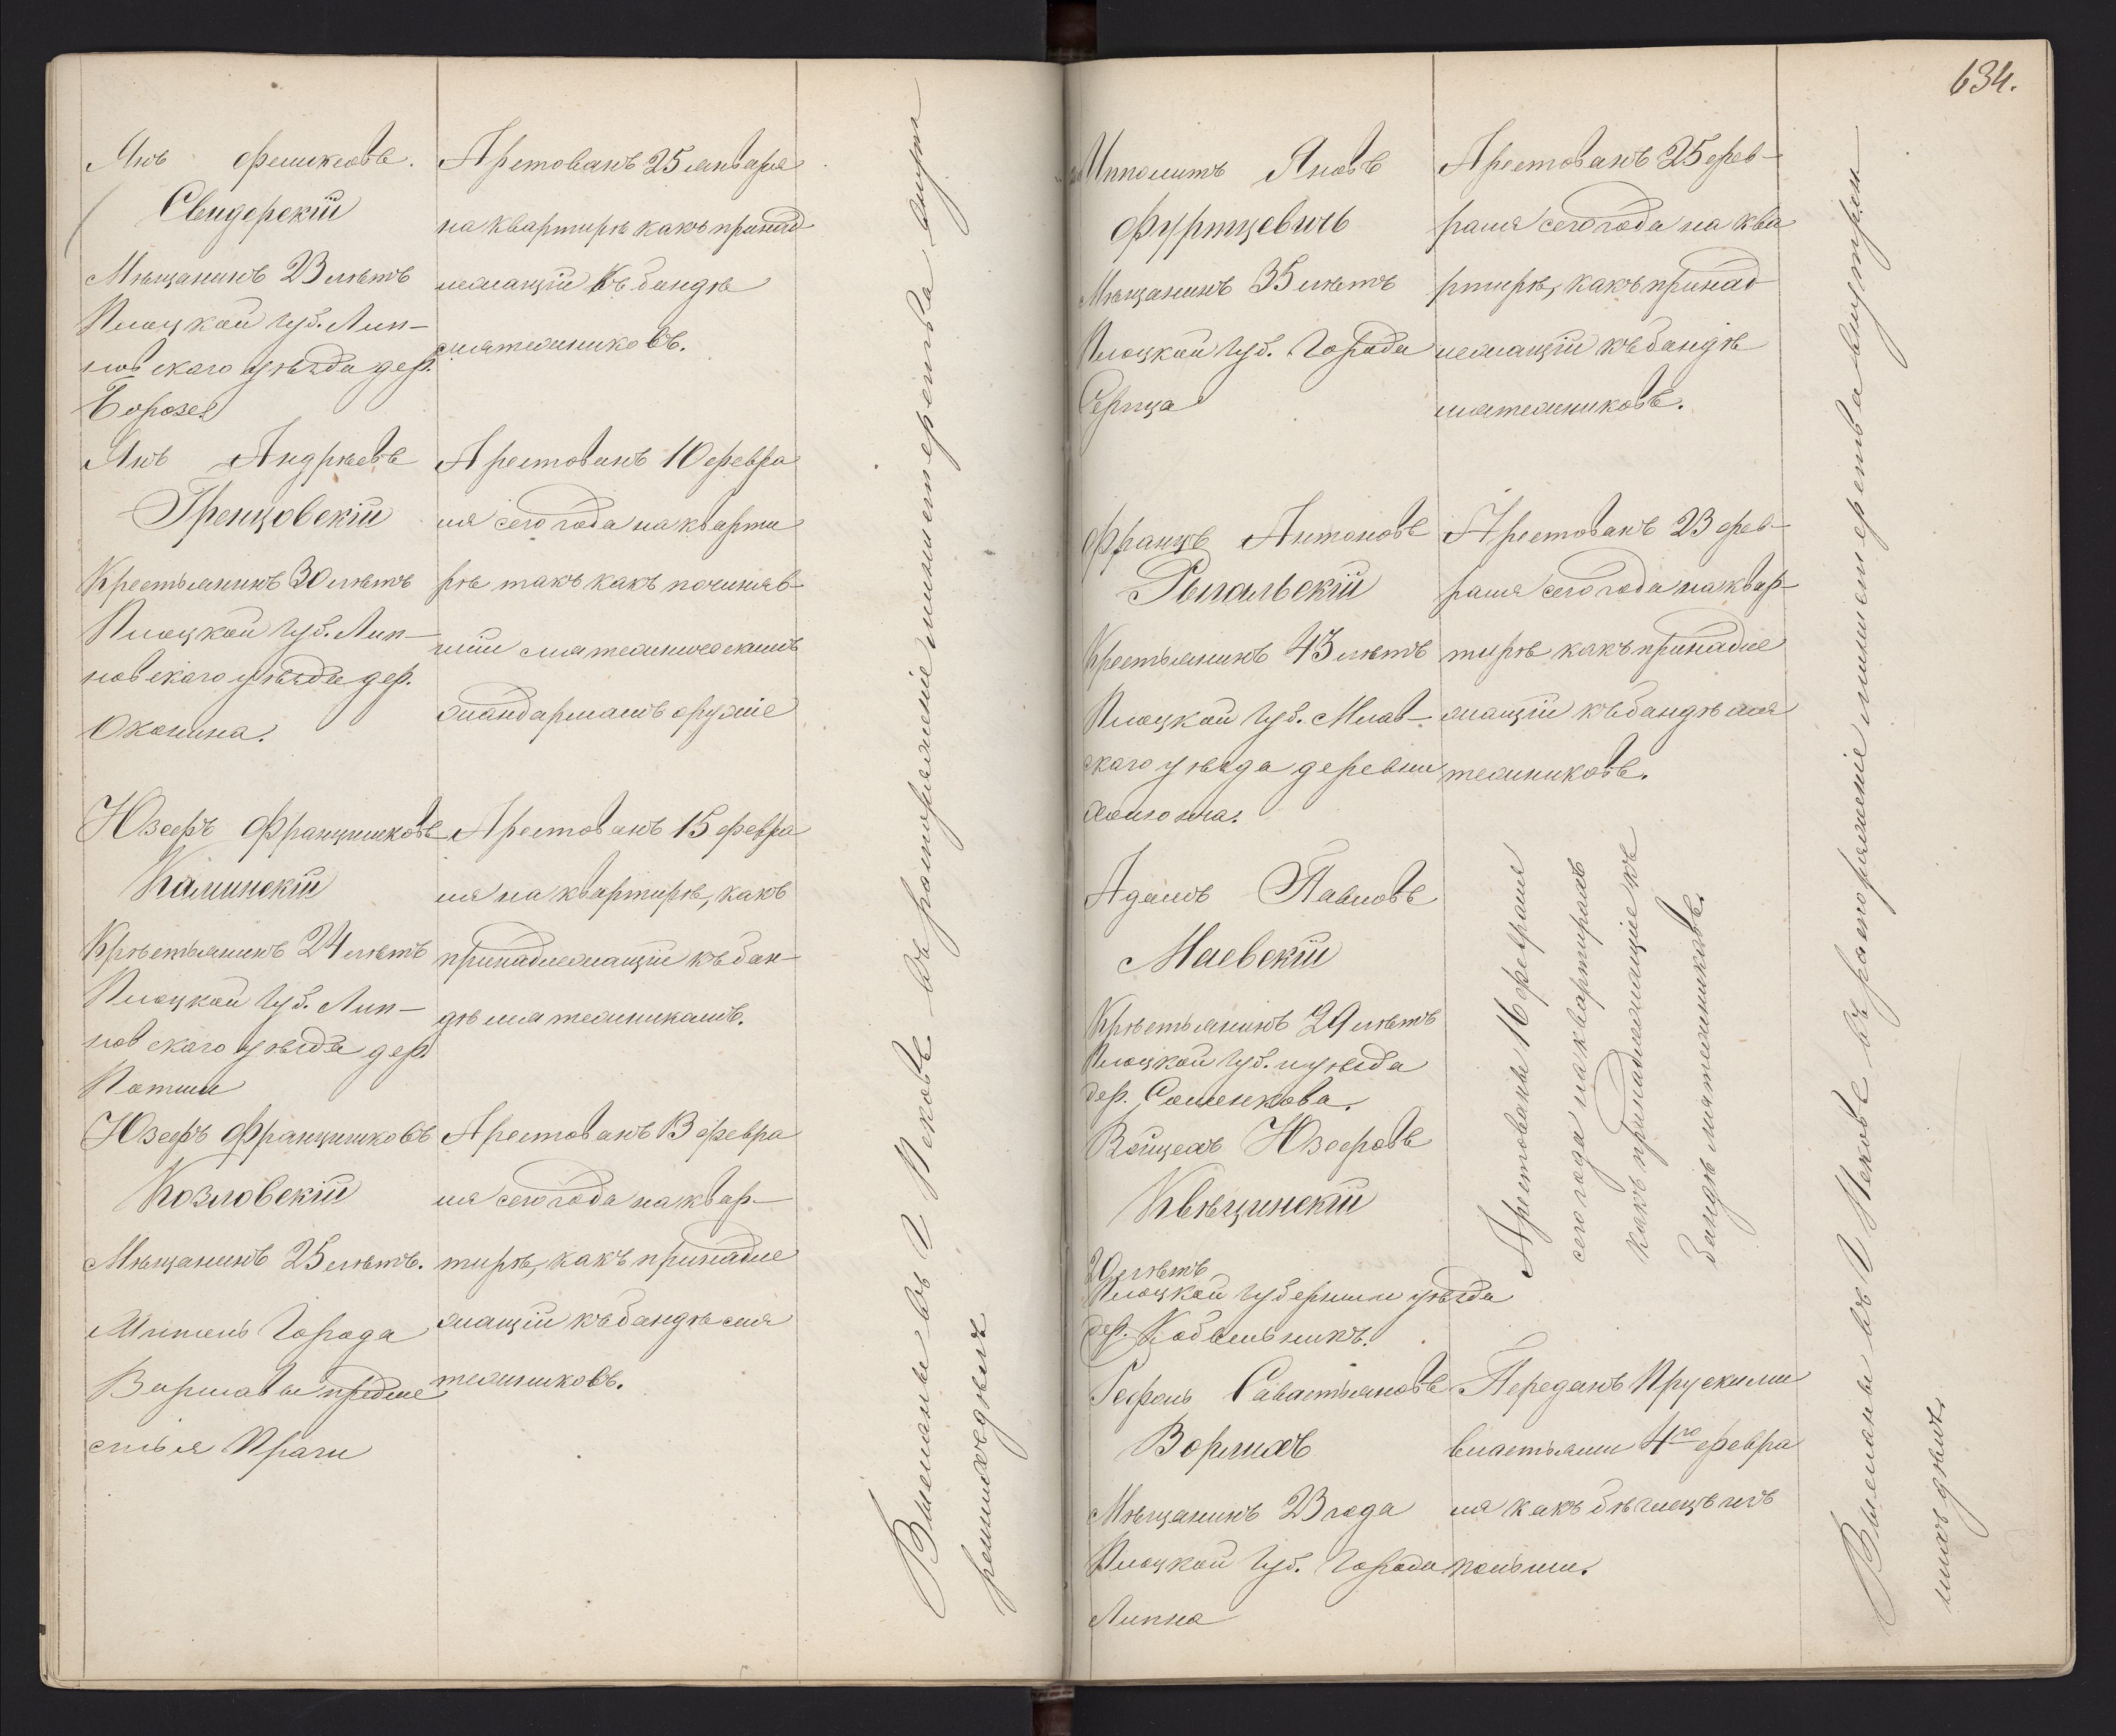 Янъ Феликсовъ.
Свидерскій
Мѣщанинъ 23 лѣтъ
Плоцкой Губ. Лип-
новскаго уѣзда дер.
Арестованъ 25 января
на квартирѣ какъ принад
лежащій къ бандѣ
мятежниковъ.
Янъ Андрѣевъ
Гренцовскій
Крестьянинъ 30 лѣтъ
Плоцкой Губ. Лип-
новскаго уѣзда дер.
Оконина.
Арестованъ 10 февра
ля сего года на кварти
рѣ такъ какъ починяв-
шій мятежническимъ
жандармамъ оружіе
Юзефъ Францишковъ
Калинскій
Крѣстьянинъ 24 лѣтъ
Плоцкой Губ. Лип-
новскаго уѣзда дер
Арестованъ 15 февра
ля на квартирѣ, какъ
принадлежащіе къ бан-
дѣ мятежникамъ.
Юзефъ Францишковъ
Козловскій
Мѣщанинъ 25 лѣтъ.
Житель Города
Варшавы предме
стья Праги
Арестованъ 13 февра
ля сего года на квар-
тирѣ, какъ принадле
жащій къ бандѣ мя
тежниковъ.
Высланы въ Г Псковъ въ распоряженіе министерства внут
реннихъ дѣлъ
634.
Ипполитъ Яновъ
Фуртцевичъ
Мѣщанинъ 35 лѣтъ
Плоцкой Губ. Города
Серпца
Арестованъ 25 фев-
раля сего года на ква
ртирѣ, какъ принад
лежащій къ бандѣ
мятежниковъ.
Францъ Антоновъ
Рыгальскій
Крестьянинъ 43 лѣтъ
Плоцкой Губ. Млав-
скаго уѣзда деревни
Арестованъ 23 фев-
раля сего года на квар-
тирѣ какъ принадле
жащій къ бандѣ мя
тежниковъ.
Адамъ Павловъ
Маевскій
Крѣстьянинъ 29 лѣтъ
Плоцкой Губ. и уѣзда
дер. Соменкова.
Войцехъ Юзефовъ
Квѣцинскій
20 лѣтъ
Плоцкой Губерніи уѣзда
дер. Кобыльникъ.
Арестованы 16 февраля
сего года на квартирахъ
какъ принадлежащіе къ
бандѣ мятежниковъ.
Савастьяновъ
Ворлихъ
Мѣщанинъ 23 года
Плоцкой Губ. Города
Липна
Переданъ Прускими
властьями 4го февра
ля какъ бѣглецъ изъ
польши.
Высланы въ Г Псковъ въ распоряженіе министерства внутрен
нихъ дѣлъ.